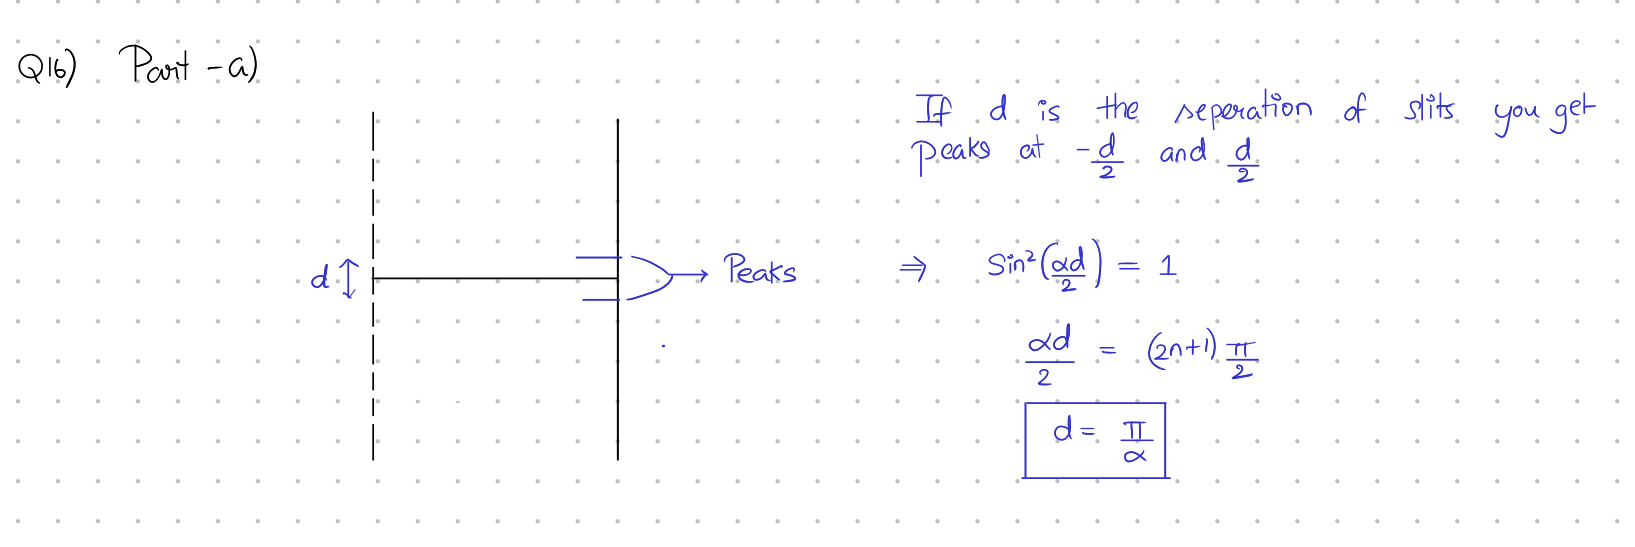 Q16) Part - a)
If d is the seperation of slits you get
peaks at -d/2 and d/2
d
Peaks
⇒ Sin²(αd/2) = 1
αd/2 = (2n+1) π/2
d = π/α